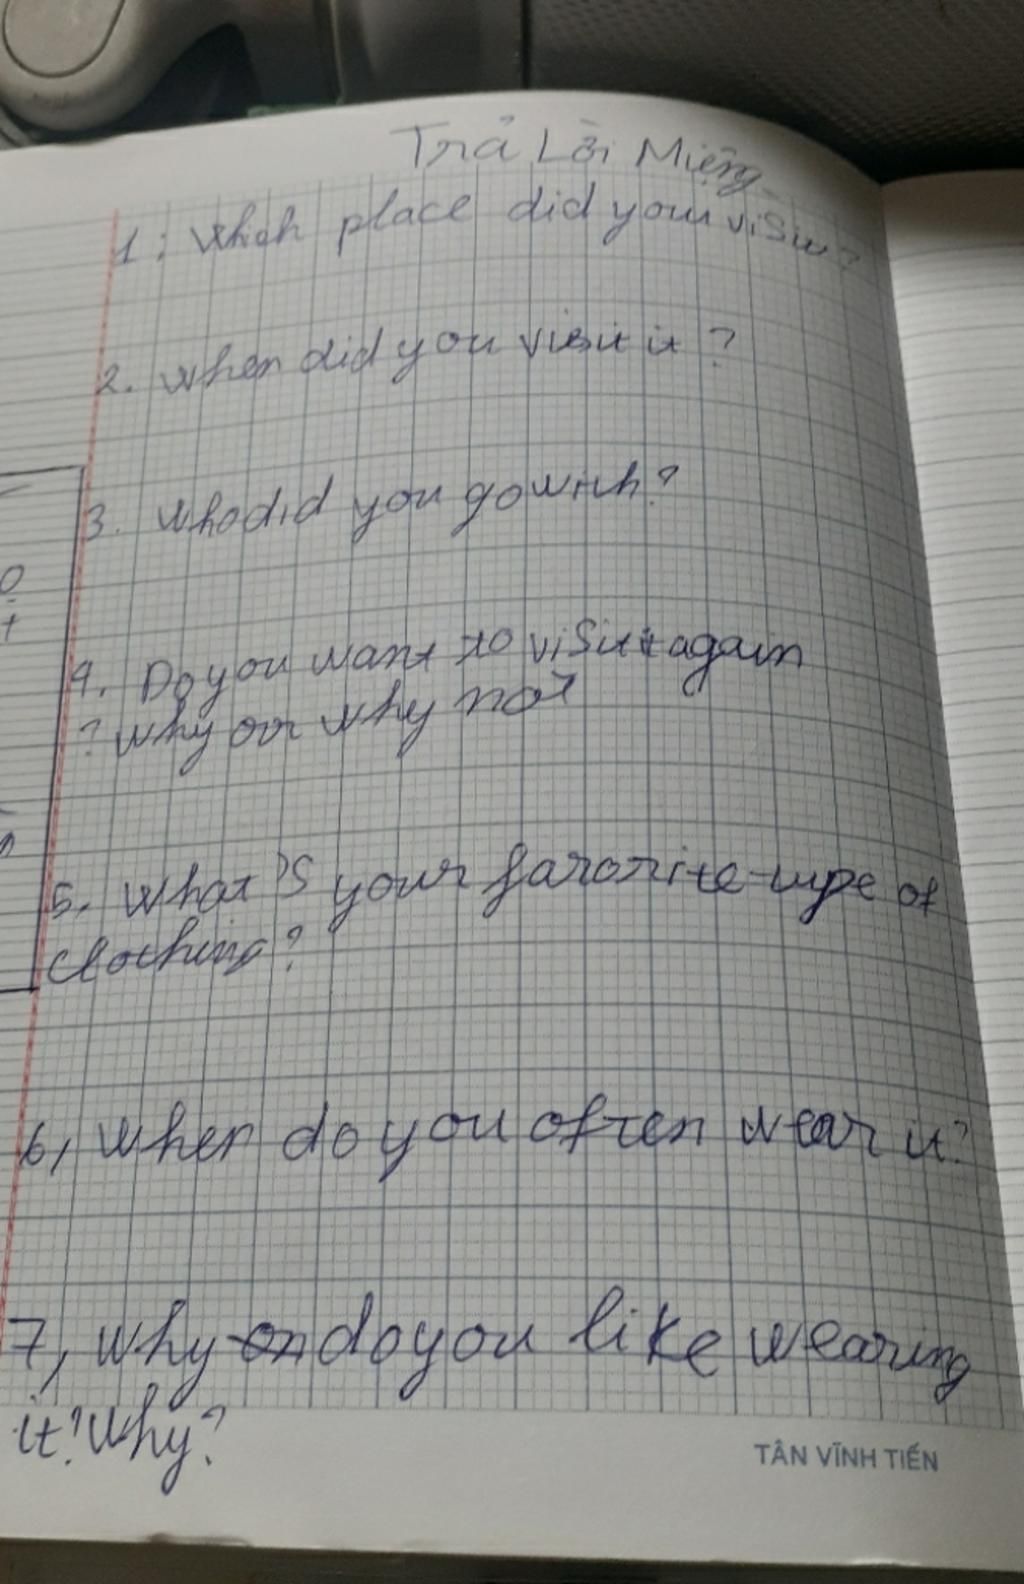 Trả Lời Miệng
1; Which place did your visit?
2. When did you visit it?
3. Who did you go with?
4. Do you want to visit it again
? why or why not
5. What's your favorite type of
clothing?
6, When do you often wear it?
7, Why do you like wearing
it? Why?
TÂN VĨNH TIẾN